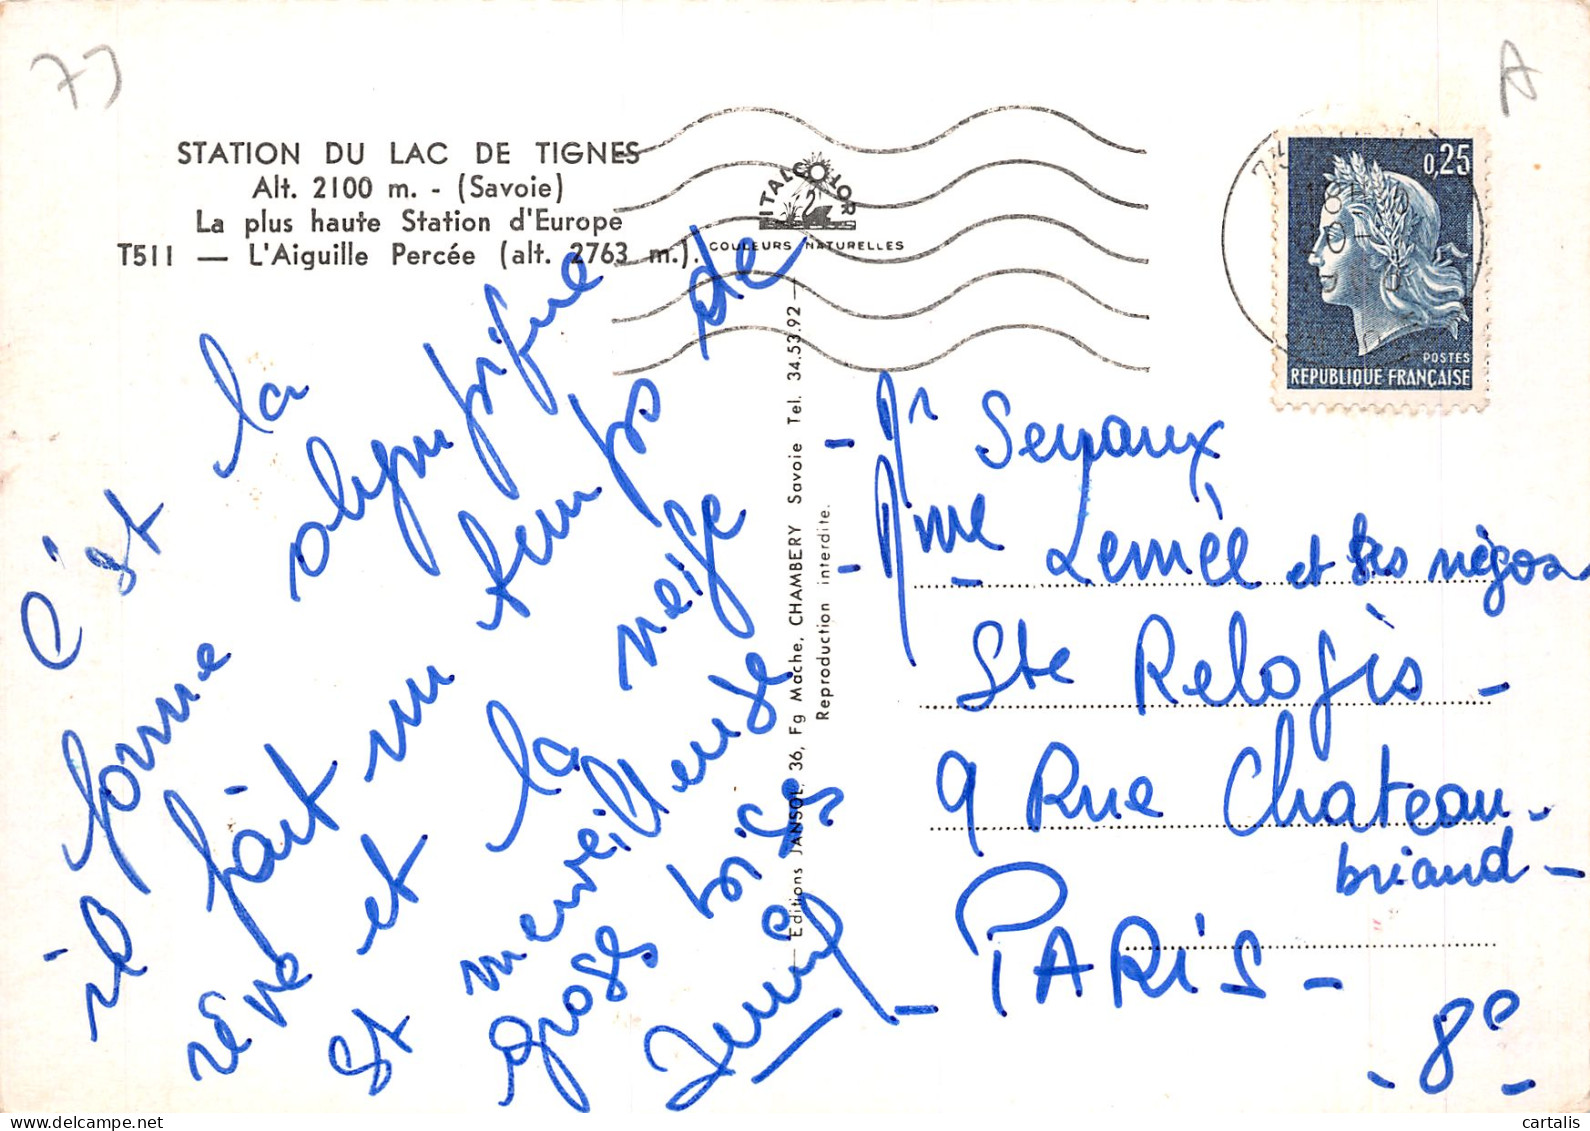 73
A
STATION DU LAC DE TIGNES
Alt. 2100 m. - (Savoie)
La plus haute Station d'Europe
T511 — L'Aiguille Percée (alt. 2763 m.).
ITALCOLOR
COULEURS NATURELLES
0,25
POSTES
REPUBLIQUE FRANÇAISE
C'est la
forme olympique
il fait un temps de
rêve et la neige
est merveilleuse
groses bises
Editions JANSOL, 36, Fg Mache, CHAMBERY Savoie Tel. 34.53.92
Reproduction interdite.
- Mr Seyaux
- Mme Lemée et les négos
Ste Relogis -
9 Rue Chateau-
briand -
- PARIS -
- 8e -
delcampe.net
cartalis